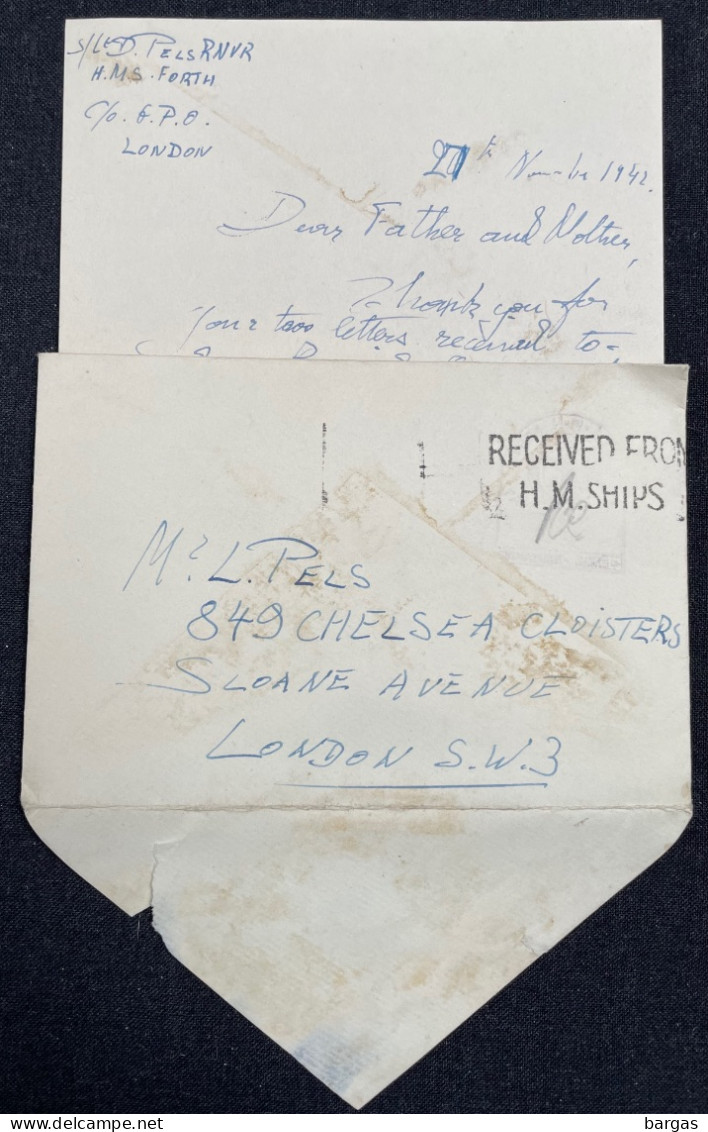 S/Lt D. PELS RNVR
H.M.S. FORTH
C/o. G.P.O.
LONDON
November 1942.
Dear Father and Mother,
Thank you for
your two letters received to=
RECEIVED FROM
H.M. SHIPS
Mr L. PELS
849 CHELSEA CLOISTERS
SLOANE AVENUE
LONDON S.W.3
bargas